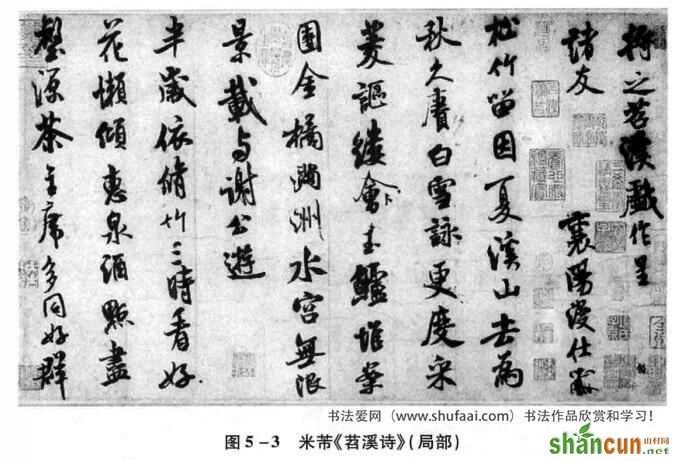 將之苕溪戲作呈
諸友
襄陽漫仕黻
松竹留因夏溪山去為
秋久賡白雪詠更度采
菱謳縷會卜玉鱸堆案
團金橘滿洲水宮無限
景載与謝公遊
半歲依脩竹三時看好
花懶傾惠泉酒點盡
壑源茶主席多同好群
书法爱网(www.shufaai.com)书法作品欣赏和学习!
图5-3 米芾《苕溪诗》(局部)
shancun 山村网
.net